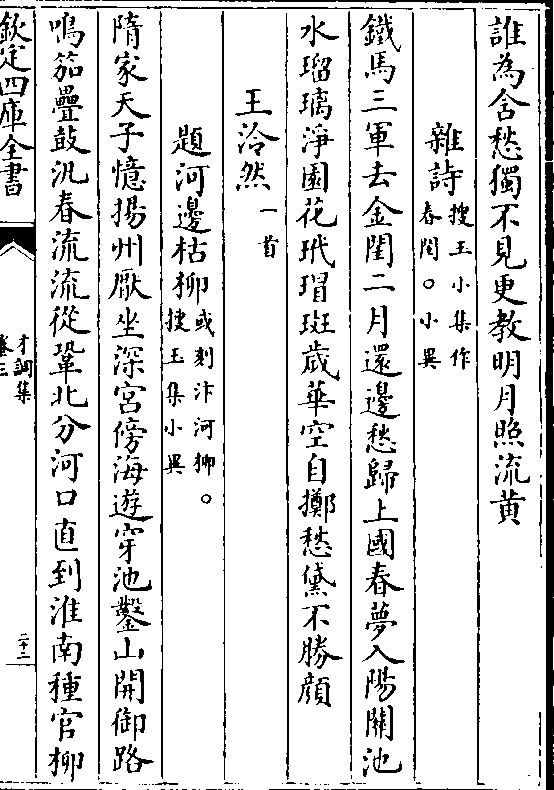 誰為含愁獨不見更教明月照流黄
雜詩搜玉小集作
春閨○小異
鐵馬三軍去金閨二月還邊愁歸上國春夢入陽關池
水瑠璃淨園花玳瑁斑歲華空自擲愁黛不勝顔
王泠然一首
題河邊枯柳或刻汴河柳。
搜玉集小異
隋家天子憶揚州厭坐深宫傍海遊穿池鑿山開御路
鳴笳疊鼓汎春流流從鞏北分河口直到淮南種官柳
欽定四庫全書
才調集
卷三
二十二